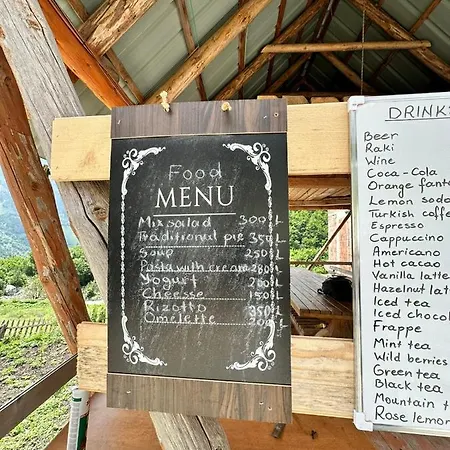 Food
MENU
Mixsalad 300 L
Traditional pie 350 L
Soup 250 L
Pasta with cream 280 L
Yogurt 200 L
Cheesse 150 L
Rizotto 350 L
Omelette 200 L
DRINK
Beer
Raki
Wine
Coca - Cola
Orange fanta
Lemon soda
Turkish coffe
Espresso
Cappuccino
Americano
Hot cacao
Vanilla latte
Hazelnut latte
Iced tea
Iced chocol
Frappe
Mint tea
Wild berries
Green tea
Black tea
Mountain t
Rose lemon